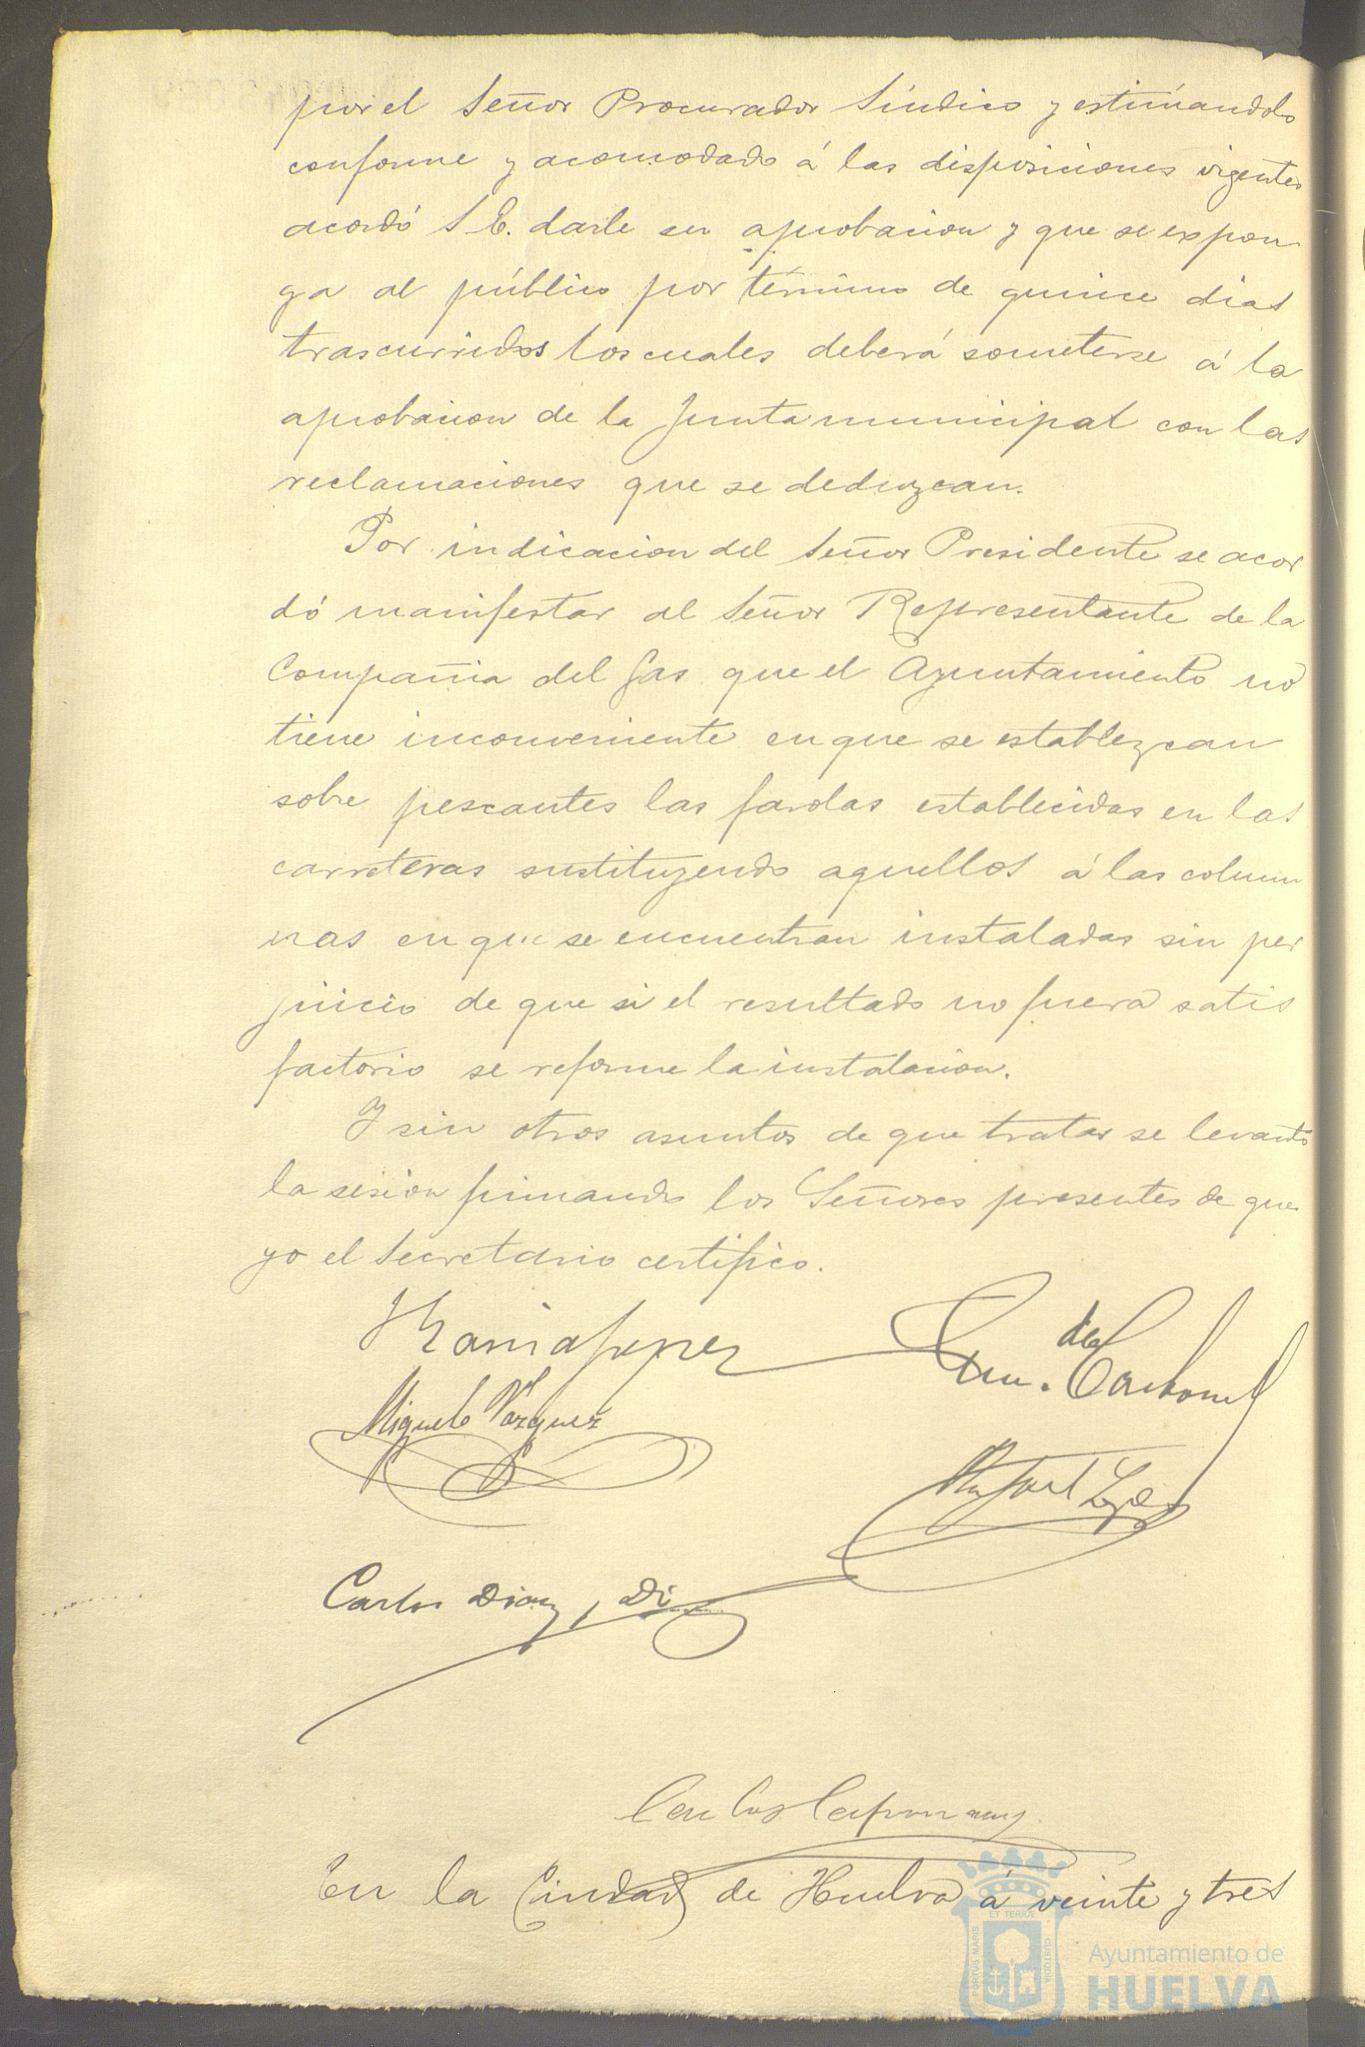 por el Señor Procurador Síndico y estimándolo
conforme y acomodado á las disposiciones vigentes
acordó S. E. darle su aprobacion y que se expon
ga al público por término de quince dias
trascurridos los cuales deberá someterse á la
aprobacion de la Junta municipal con las
reclamaciones que se deduzcan.
Por indicacion del Señor Presidente se acor
dó manifestar al Señor Representante de la
Compañia del Gas que el Ayuntamiento no
tiene inconveniente en que se establezcan
sobre pescantes las farolas establecidas en las
carreteras sustituyendo aquellos á las colum
nas en que se encuentran instaladas sin per
juicio de que si el resultado no fuera satis
factorio se reforme la instalacion.
Y sin otros asuntos de que tratar se levantó
la sesion firmando los Señores presentes de que
yo el Secretario certifico.
de Carbonel
Miguel Vázquez
Rafael López
Carlos Diaz y
Carlos
En la Ciudad de Huelva á veinte y tres
PORTUS MARIS
ET TERRÆ
CUSTODIA
Ayuntamiento de
HUELVA